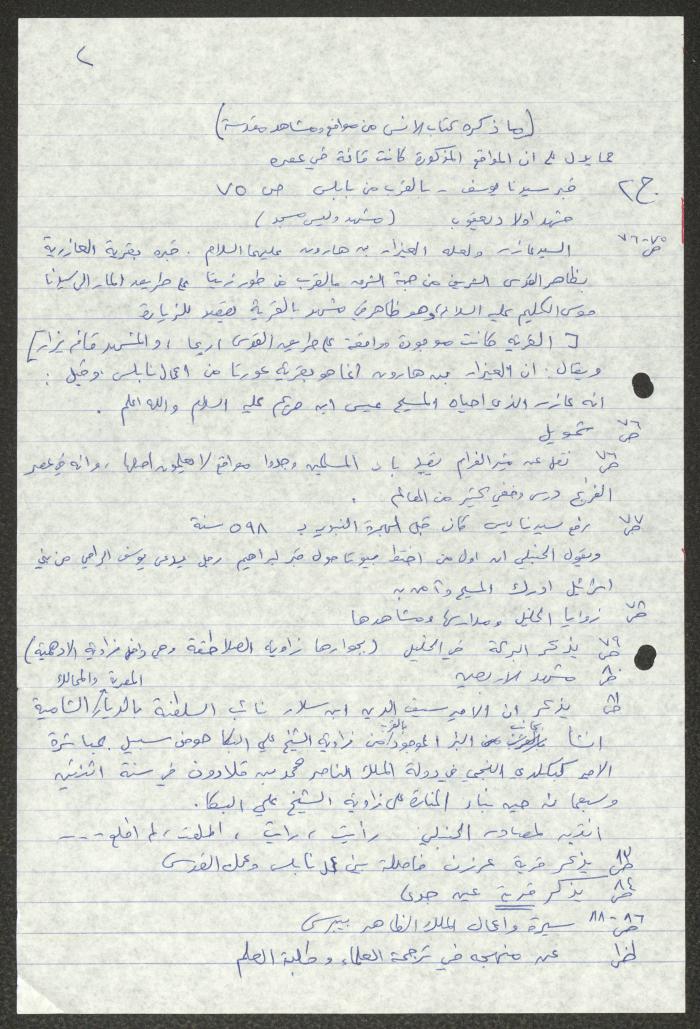 ٢
(ما ذكره كتاب الانس من مواقع ومشاهد مقدسة)
مما يدل على ان المواقع المذكورة كانت قائمة في عصره
ج٢ قبر سيدنا يوسف - بالقرب من نابلس ص ٧٥
مشهد اولاد يعقوب (مشهد وليس مسجد)
ص ٧٥-٧٦ السيد عازر ولعله العيزار بن هارون عليهما السلام . قبره بقرية العازرية
بظاهر القدس الشريف من جهة الشرق بالقرب من طور زيتا على طريق المار الى سيدنا
موسى الكليم عليه السلام وهو ظاهر في مشهد بالقرية يقصد للزيارة
[ القرية كانت موجودة مرافقة على طريق القدس اريحا ، والمشهد قائم يزار ]
ويقال : ان العيزار بن هارون انما هو بقرية عورتا من اعمال نابلس ، وقيل :
انه عازر الذي احياه المسيح عيسى ابن مريم عليه السلام والله اعلم .
ص ٧٦ شمويل
ص ٧٦ نقل عن مثير الغرام يفيد بان المسلمين وجدوا مواقع لا يعلمون اصلها ، وانه في عصر
الفرنج درس وخفي كثير من المعالم .
ص ٧٧ رفع سيدنا عيسى كان قبل الهجرة النبوية بـ ٥٩٨ سنة
ويقول الحنبلي ان اول من اختط بيوتا حول قبر ابراهيم رجل يدعى يوسف الرامي من بني
اسرائيل ادرك المسيح وآمن به
ص ٧٨ زوايا الخليل ومدارسها ومشاهدها
ص ٧٩ يذكر البركة في الخليل (بجوارها زاوية الصلاطقة وهي داخل زاوية الادهمية)
ص ٨٠ مشهد الاربعين
المصرية والممالك
ص ٨١ يذكر ان الامير سيف الدين ابن سلار نائب السلطنة بالديار الشامية
انشأ البئر الموجود بالقرب من زاوية الشيخ علي البكا حوض سبيل بمباشرة
الامير كيكلدي النجمي في دولة الملك الناصر محمد بن قلاوون في سنة اثنتين
وسبعمائة حين بناء المنارة على زاوية الشيخ علي البكا.
انتبه لمصادر الحنبلي رأيت ، رأيت ، اطلعت ، لم اطلع ...
ص ٨٣ يذكر قرية عرزن فاصلة بين عمل نابلس وعمل القدس
ص ٨٤ يذكر قرية عين جدى
ص ٨٦-٨٨ سيرة واعمال الملك الظاهر بيبرس
عن منهجه في ترجمة العلماء وطلبة العلم